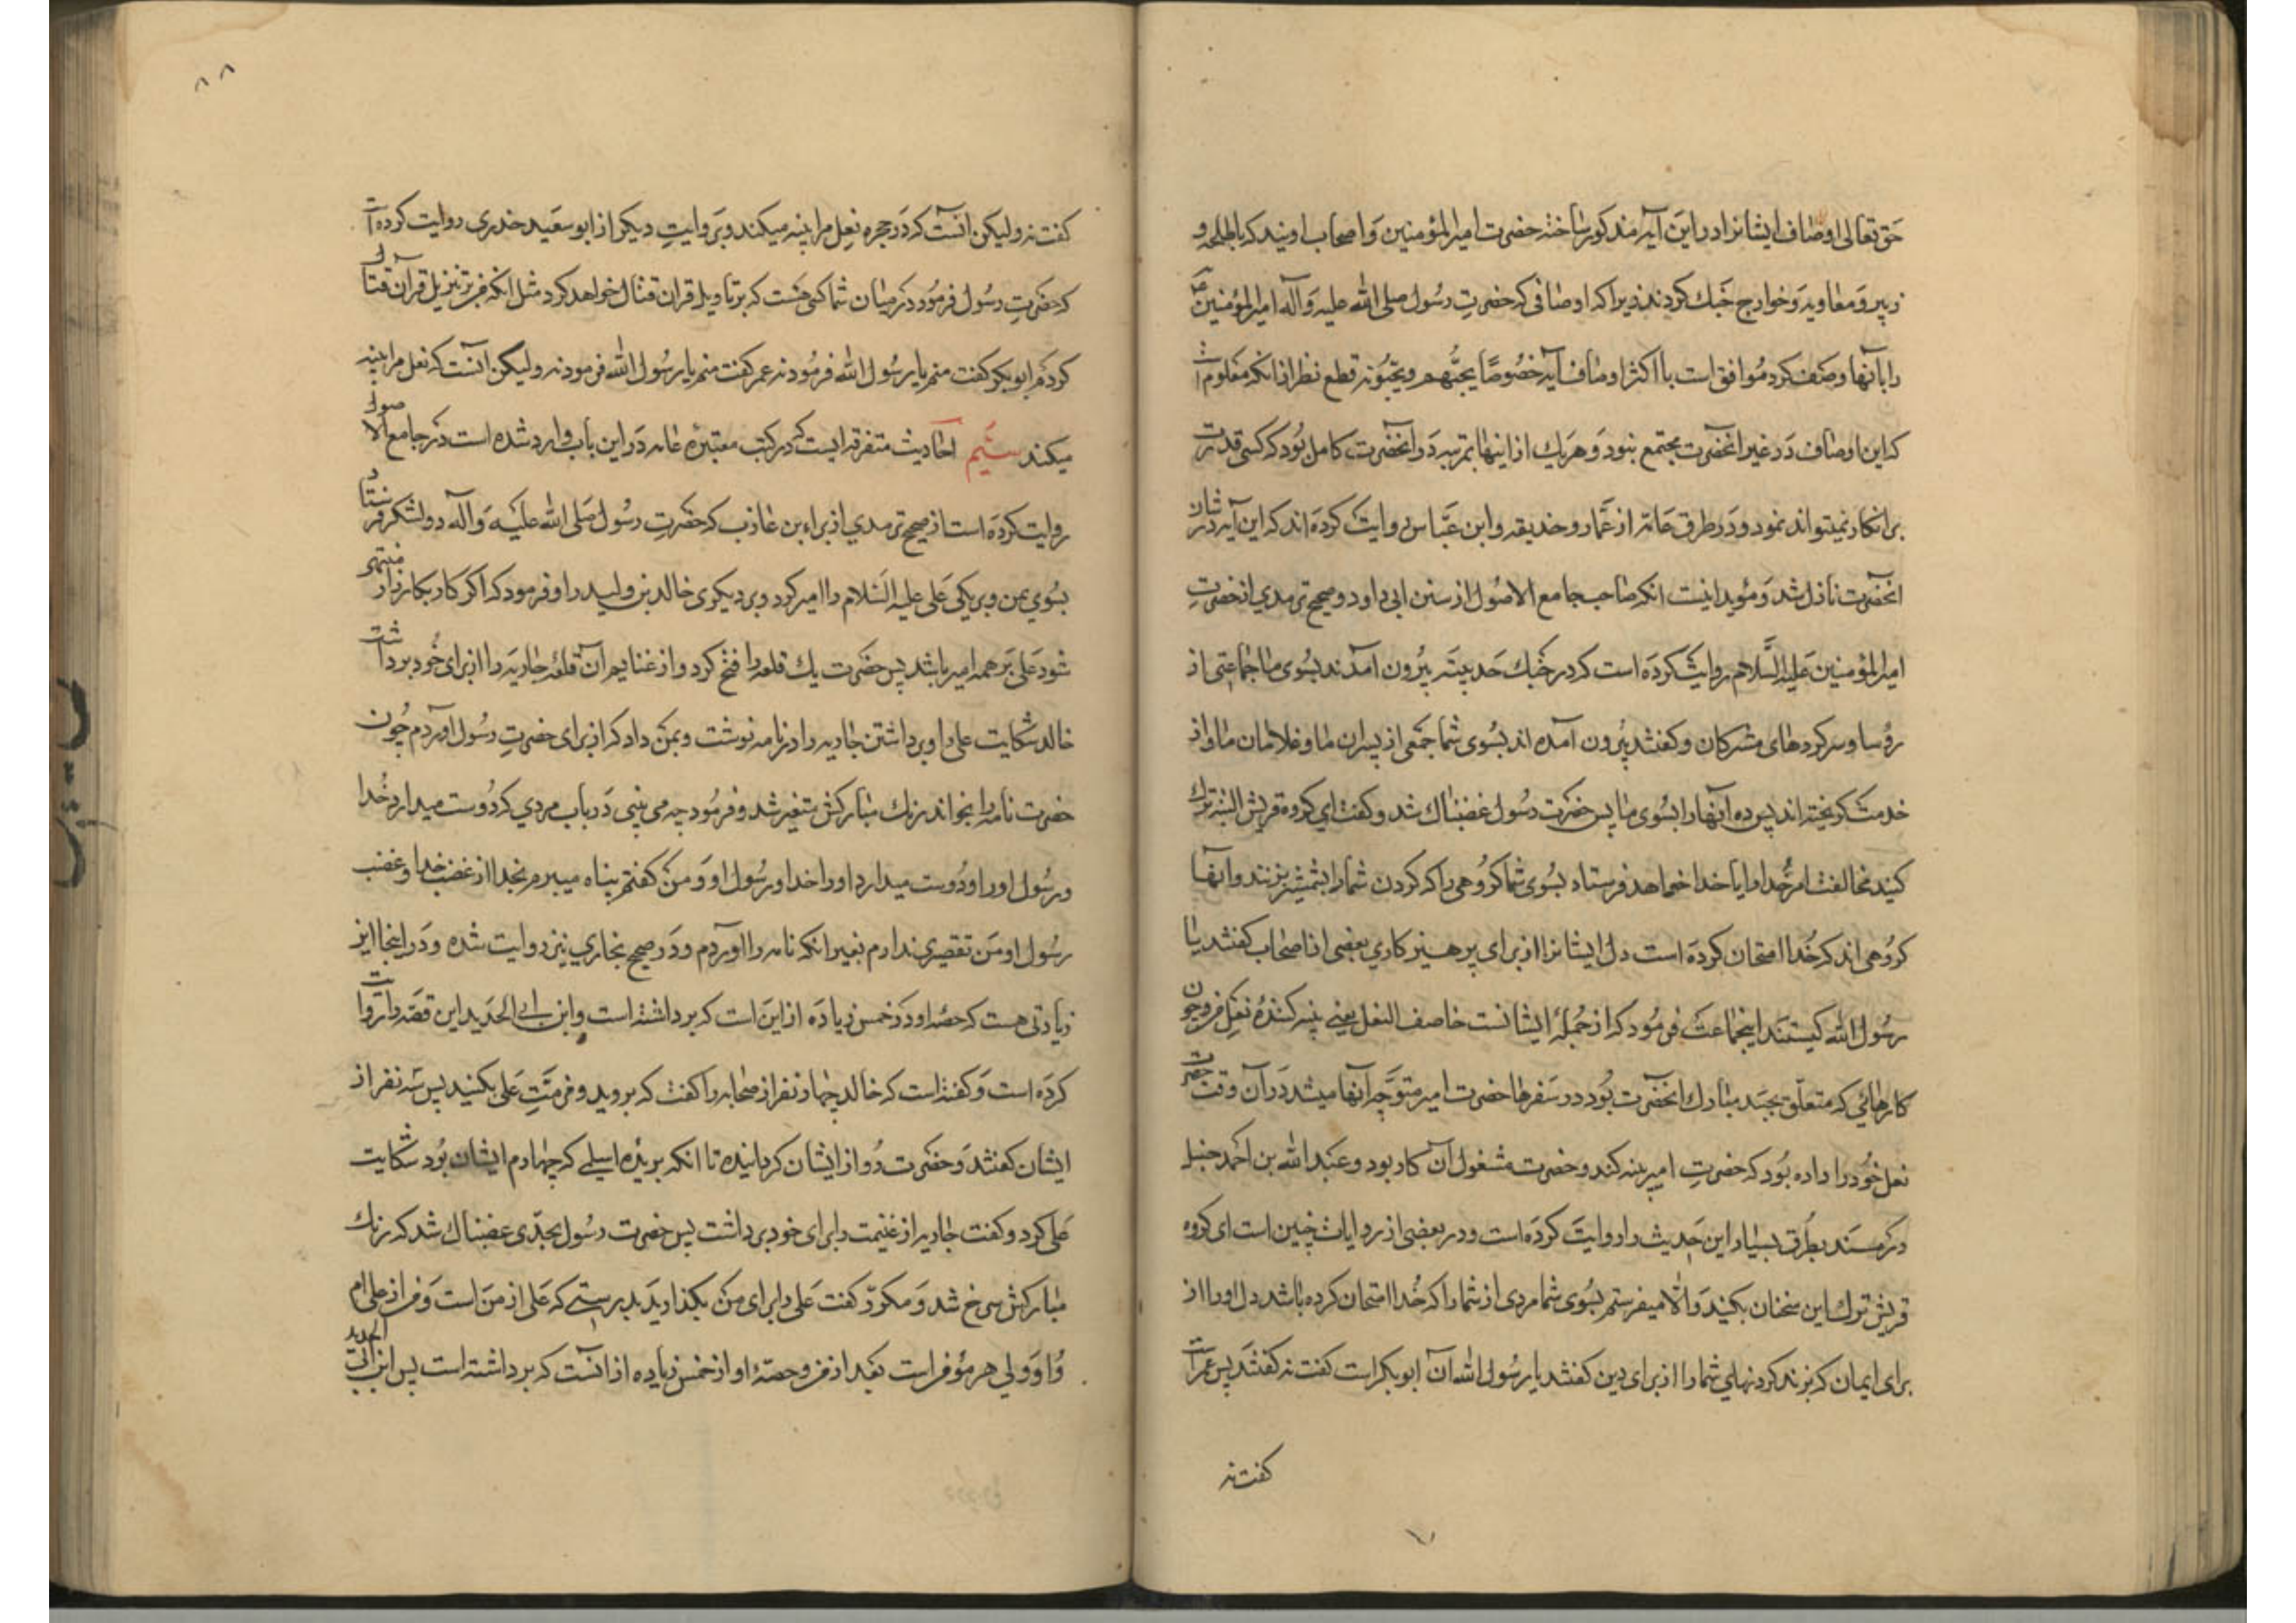 حق تعالی اوصاف ایشانرا در این آیه مذکور ساخته حضرت امیرالمؤمنین و اصحاب اویند که با طلحه و
زبیر و معاویه و خوارج جنک کردند زیرا که اوصافی که حضرت رسول صلی الله علیه و آله امیرالمؤمنین ع
را بآنها وصف کرد موافق است با اکثر اوصاف آیه خصوصًا یحبّهم و یحبّونه قطع نظر از انکه معلوم است
که این اوصاف در غیر انحضرت مجتمع نبود و هریک از اینها بمرتبه در انحضرت کامل بود که کسی قدرت
بر انکار نمیتواند نمود و در طرق عامه از عمار و حذیفه و ابن عباس روایت کرده اند که این آیه در شان
انحضرت نازل شد و مؤید اینست انکه صاحب جامع الاصول از سنن ابی داود و صحیح ترمدی از حضرت
امیرالمؤمنین علیه السلام روایت کرده است که در جنک حدیبیه بیرون آمدند بسوی ما جماعتی از
رؤسا و سرکردهای مشرکان و کفتند بیرون آمده اند بسوی شما جمعی از پسران ما و غلامان ما و از
خدمت کریخته اند پس ده آنها را بسوی ما پس حضرت رسول غضبناک شد و کفت ای کروه قریش البته ترک
کنید مخالفت امر خدا را و یا خدا خواهد فرستاد بسوی شما کروهی را که کردن شما را بشمشیر بزنند و آنها
کروهی اند که خدا امتحان کرده است دل ایشانرا از برای پرهیزکاری بعضی از اصحاب کفتند یا
رسول الله کیستند اینجماعت فرمود که از جملۀ ایشانست خاصف النعل یعنی پینه کنندۀ نعل من و چون
کارهائی که متعلق بجسد مبارک انحضرت بود در سفرها حضرت امیر متوجه آنها میشد در آن وقت حضرت
نعل خود را داده بود که حضرت امیر پینه کند و حضرت مشغول آن کار بود و عبد الله بن احمد حنبل
در مسند بطرق بسیار این حدیث را روایت کرده است و در بعضی از روایات چنین است ای کروه
قریش ترک این سخنان بکنید والا میفرستم بسوی شما مردی از شما را که خدا امتحان کرده باشد دل او را از
برای ایمان که بزند کردنهای شما را از برای دین کفتند یا رسول الله آن ابوبکر است کفت نه کفتند پس عمر است
کفت نه
۸۸
کفت نه ولیکن آنست که در حجره نعل مرا پینه میکند و بروایت دیکر از ابو سعید خدری روایت کرده است
که حضرت رسول فرمود در میان شما کسی هست که بر تاویل قران قتال خواهد کرد مثل انکه من بر تنزیل قرآن قتال
کردم ابوبکر کفت منم یا رسول الله فرمود نه عمر کفت منم یا رسول الله فرمود نه ولیکن آنست که نعل مرا پینه
میکند سیّم احادیث متفرقه ایست که در کتب معتبره عامه در این باب وارد شده است در جامع الاصول
روایت کرده است از صحیح ترمدی از براء بن عازب که حضرت رسول صلی الله علیه و آله دو لشکر فرستاد
بسوی یمن و بر یکی علی علیه السلام را امیر کرد و بر دیکری خالد بن ولید را و فرمود که اکر کار بکارزار منتهی
شود علی بر همه امیر باشد پس حضرت یک قلعه را فتح کرد و از غنایم آن قلعه جاریه را از برای خود برداشت
خالد شکایت علی را و برداشتن جاریه را در نامه نوشت و بمن داد که از برای حضرت رسول آوردم چون
حضرت نامه را بخواند رنک مبارکش متغیر شد و فرمود چه می بینی در باب مردی که دوست میدارد خدا
و رسول او را و دوست میدارد او را خدا و رسول او و من کفتم پناه میبرم بخدا از غضب خدا و غضب
رسول او من تقصیری ندارم بغیر انکه نامه را آوردم و در صحیح بخاری نیز روایت شده و در اینجا این
زیادتی هست که حصۀ او در خمس زیاده از این است که برداشته است و ابن ابی الحدید این قصه را روایت
کرده است و کفته است که خالد چهار نفر از صحابه را کفت که بروید و مذمّت علی بکنید پس سه نفر از
ایشان کفتند و حضرت رو از ایشان کردانیده تا انکه بریده اسلمی که چهارم ایشان بود شکایت
علی کرد و کفت جاریه از غنیمت را برای خود برداشت پس حضرت رسول بحدّی غضبناک شد که رنک
مبارکش سرخ شد و مکرّر کفت علی را برای من بکذارید بدرستی که علی از من است و من از علی ام
و او ولی هر مؤمن است بعد از من و حصۀ او از خمس زیاده از آنست که برداشته است پس ابن ابی الحدید